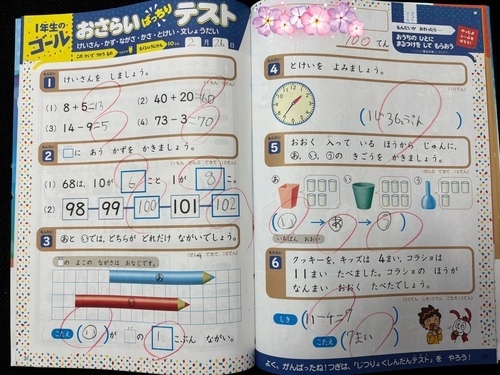 1年生の
ゴール
おさらい
ばっちり
テスト
けいさん・かず・ながさ・かさ・とけい・文しょうだい
1 けいさんを しましょう。
(1) 8+5=13
(2) 40+20=60
(3) 14-9=5
(4) 73-3=70
2 □に あう かずを かきましょう。
(1) 68は、10が 6こと 1が 8こ。
(2) 98 99 100 101 102
3 あと いでは、どちらが どれだけ ながいでしょう。
の よこの ながさは おなじです。
あ
い
こたえ (い)が の 1こぶん ながい。
もんだいが おわったら…
おうちの ひとに
まるつけを して もらおう
100てん
4 とけいを よみましょう。
5 おおく 入って いる ほうから じゅんに、
あ、い、うの きごうを かきましょう。
あ い う
(い → あ → う)
いちばん おおい
6 クッキーを、キッズは 4まい、コラショは
11まい たべました。コラショの ほうが
なんまい おおく たべたでしょう。
しき (11-4=7)
こたえ (7まい)
よく、がんばったね!つぎは、「じつりょくしんだんテスト」を やろう!